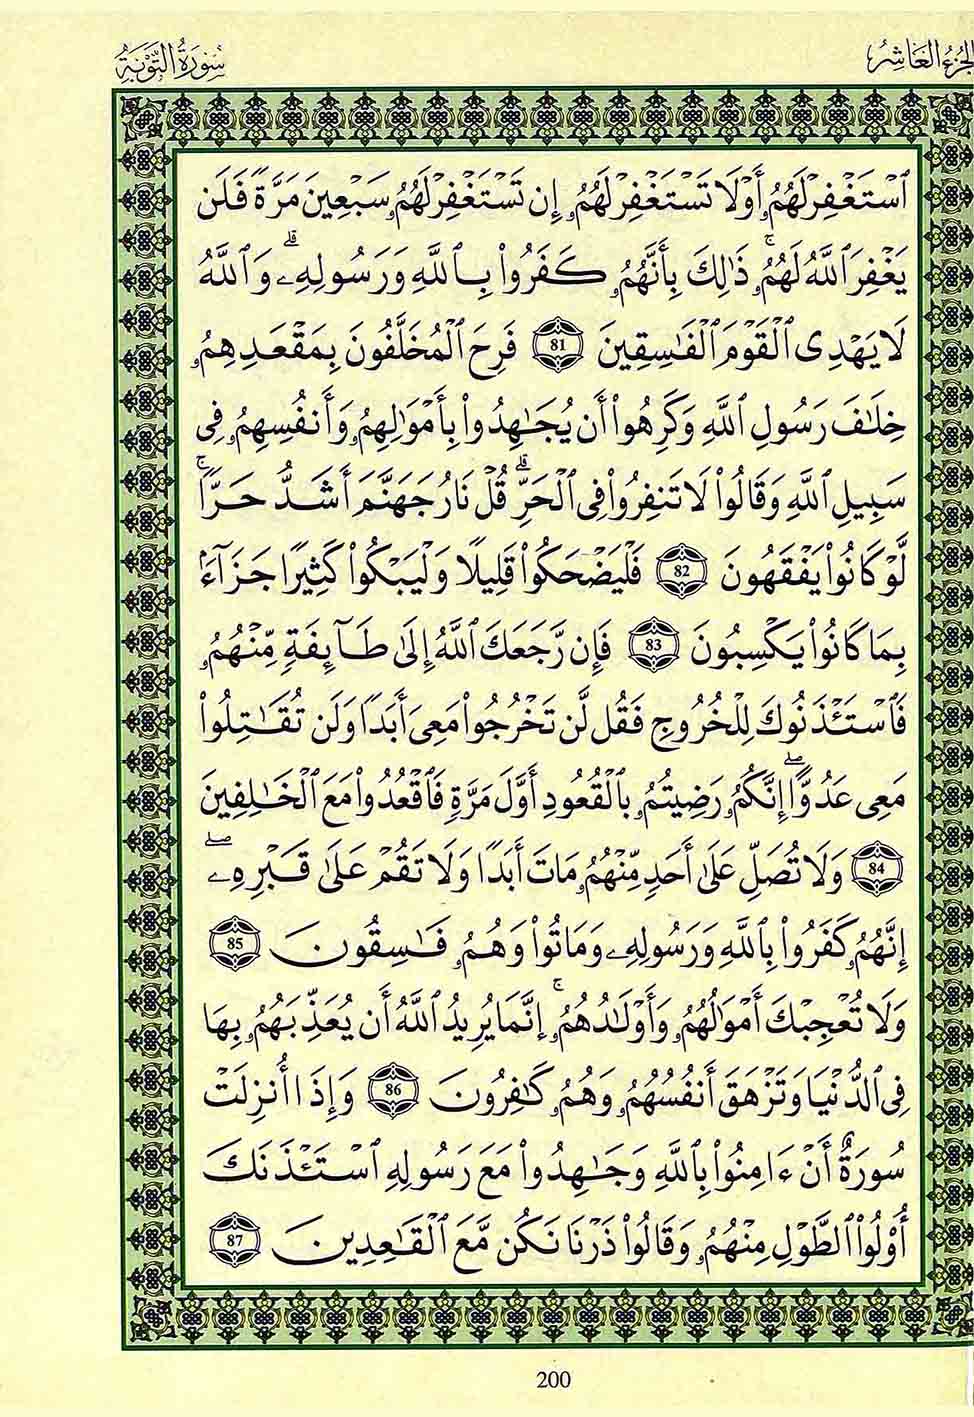 الجزء العاشر
سورة التوبة
ٱسۡتَغۡفِرۡ لَهُمُۥٓ أَوۡ لَا تَسۡتَغۡفِرۡ لَهُمُۥٓ إِن تَسۡتَغۡفِرۡ لَهُمُۥ سَبۡعِينَ مَرَّةٗ فَلَن
يَغۡفِرَ ٱللَّهُ لَهُمُۥۚ ذَٰلِكَ بِأَنَّهُمُۥ كَفَرُواْ بِٱللَّهِ وَرَسُولِهِۦۗ وَٱللَّهُ
لَا يَهۡدِي ٱلۡقَوۡمَ ٱلۡفَٰسِقِينَ 81 فَرِحَ ٱلۡمُخَلَّفُونَ بِمَقۡعَدِهِمُۥ
خِلَٰفَ رَسُولِ ٱللَّهِ وَكَرِهُوٓاْ أَن يُجَٰهِدُواْ بِأَمۡوَٰلِهِمُۥ وَأَنفُسِهِمُۥ فِي
سَبِيلِ ٱللَّهِ وَقَالُواْ لَا تَنفِرُواْ فِي ٱلۡحَرِّۗ قُلۡ نَارُ جَهَنَّمَ أَشَدُّ حَرّٗاۚ
لَّوۡ كَانُواْ يَفۡقَهُونَ 82 فَلۡيَضۡحَكُواْ قَلِيلٗا وَلۡيَبۡكُواْ كَثِيرٗا جَزَآءَۢ
بِمَا كَانُواْ يَكۡسِبُونَ 83 فَإِن رَّجَعَكَ ٱللَّهُ إِلَىٰ طَآئِفَةٖ مِّنۡهُمُۥ
فَٱسۡتَـٔۡذَنُوكَ لِلۡخُرُوجِ فَقُل لَّن تَخۡرُجُواْ مَعِي أَبَدٗا وَلَن تُقَٰتِلُواْ
مَعِي عَدُوًّاۖ إِنَّكُمُۥ رَضِيتُمُۥ بِٱلۡقُعُودِ أَوَّلَ مَرَّةٖ فَٱقۡعُدُواْ مَعَ ٱلۡخَٰلِفِينَ
84 وَلَا تُصَلِّ عَلَىٰٓ أَحَدٖ مِّنۡهُمُۥ مَاتَ أَبَدٗا وَلَا تَقُمۡ عَلَىٰ قَبۡرِهِۦٓۖ
إِنَّهُمُۥ كَفَرُواْ بِٱللَّهِ وَرَسُولِهِۦ وَمَاتُواْ وَهُمُۥ فَٰسِقُونَ 85
وَلَا تُعۡجِبۡكَ أَمۡوَٰلُهُمُۥ وَأَوۡلَٰدُهُمُۥٓۚ إِنَّمَا يُرِيدُ ٱللَّهُ أَن يُعَذِّبَهُمُۥ بِهَا
فِي ٱلدُّنۡيَا وَتَزۡهَقَ أَنفُسُهُمُۥ وَهُمُۥ كَٰفِرُونَ 86 وَإِذَآ أُنزِلَتۡ
سُورَةٌ أَنۡ ءَامِنُواْ بِٱللَّهِ وَجَٰهِدُواْ مَعَ رَسُولِهِ ٱسۡتَـٔۡذَنَكَ
أُوْلُواْ ٱلطَّوۡلِ مِنۡهُمُۥ وَقَالُواْ ذَرۡنَا نَكُن مَّعَ ٱلۡقَٰعِدِينَ 87
200